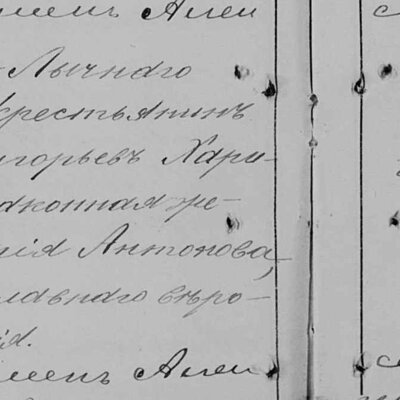 менъ Алек
Лычнаго
крестьянинъ
игорьевъ Хари-
законная же-
нія Антонова,
славнаго вѣро-
ія.
менъ Алек